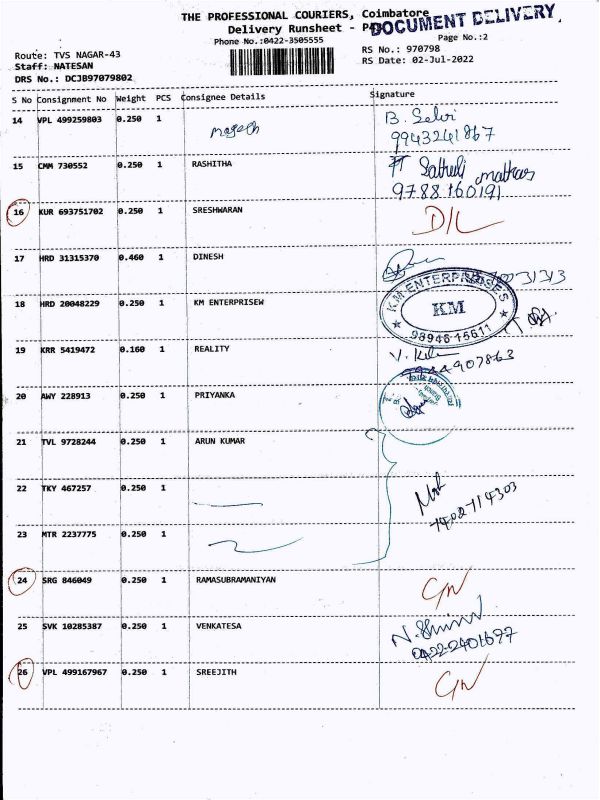 THE PROFESSIONAL COURIERS, Coimbatore
DOCUMENT DELIVERY
Delivery Runsheet -
Phone No.:0422-3505555
Page No.:2
Route: TVS NAGAR-43
RS No.: 970798
Staff: NATESAN
RS Date: 02-Jul-2022
DRS No.: DCJB97079802
S No Consignment No Weight PCS Consignee Details Signature
14 VPL 499259803 0.250 1 B. Selvi
9943241867
15 CMM 730552 0.250 1 RASHITHA
9788160191
16 KUR 693751702 0.250 1 SRESHWARAN D/L
17 HRD 31315370 0.460 1 DINESH
18 HRD 20048229 0.250 1 KM ENTERPRISEW KM ENTERPRISES
KM
98946 15611
19 KRR 5419472 0.160 1 REALITY
20 AWY 228913 0.250 1 PRIYANKA
21 TVL 9728244 0.250 1 ARUN KUMAR
22 TKY 467257 0.250 1
23 MTR 2237775 0.250 1
24 SRG 846049 0.250 1 RAMASUBRAMANIYAN
25 SVK 10285387 0.250 1 VENKATESA
0422-2401697
26 VPL 499167967 0.250 1 SREEJITH